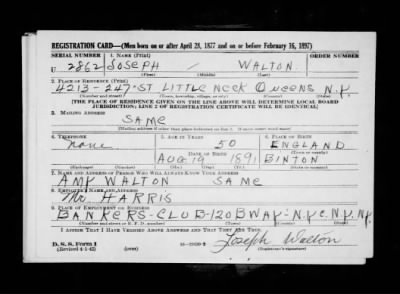 REGISTRATION CARD—(Men born on or after April 28, 1877 and on or before February 16, 1897)
SERIAL NUMBER 1. NAME (Print) ORDER NUMBER
U 2862 JOSEPH / WALTON
(First) (Middle) (Last)
2. PLACE OF RESIDENCE (Print)
4213-247-ST LITTLE NECK QUEENS N.Y.
(Number and street) (Town, township, village, or city) (County) (State)
[THE PLACE OF RESIDENCE GIVEN ON THE LINE ABOVE WILL DETERMINE LOCAL BOARD
JURISDICTION; LINE 2 OF REGISTRATION CERTIFICATE WILL BE IDENTICAL]
3. MAILING ADDRESS
SAME
[Mailing address if other than place indicated on line 2. If same insert word same]
4. TELEPHONE 5. AGE IN YEARS 6. PLACE OF BIRTH
none 50 ENGLAND
DATE OF BIRTH (Town or county)
AUG 19 1891 BINTON
(Exchange) (Number) (Mo.) (Day) (Yr.) (State or country)
7. NAME AND ADDRESS OF PERSON WHO WILL ALWAYS KNOW YOUR ADDRESS
AMY WALTON SAME
8. EMPLOYER'S NAME AND ADDRESS
Mr. HARRIS
9. PLACE OF EMPLOYMENT OR BUSINESS
BANKERS-CLUB-120 BWAY-N.Y.C. N.Y. N.Y.
(Number and street or R. F. D. number) (Town) (County) (State)
I AFFIRM THAT I HAVE VERIFIED ABOVE ANSWERS AND THAT THEY ARE TRUE.
D. S. S. Form 1
(Revised 4-1-42) (over) Joseph Walton
(Registrant's signature)